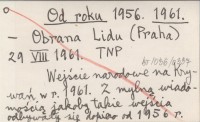 Od roku 1956. 1961.
– Obrana Lidu (Praha)
29 VIII 1961. TNP
Wejście narodowe na Kry-
wań w r. 1961. Z mylną wiado-
mością jakoby takie wejścia
odbywały się dopiero od 1956 r.